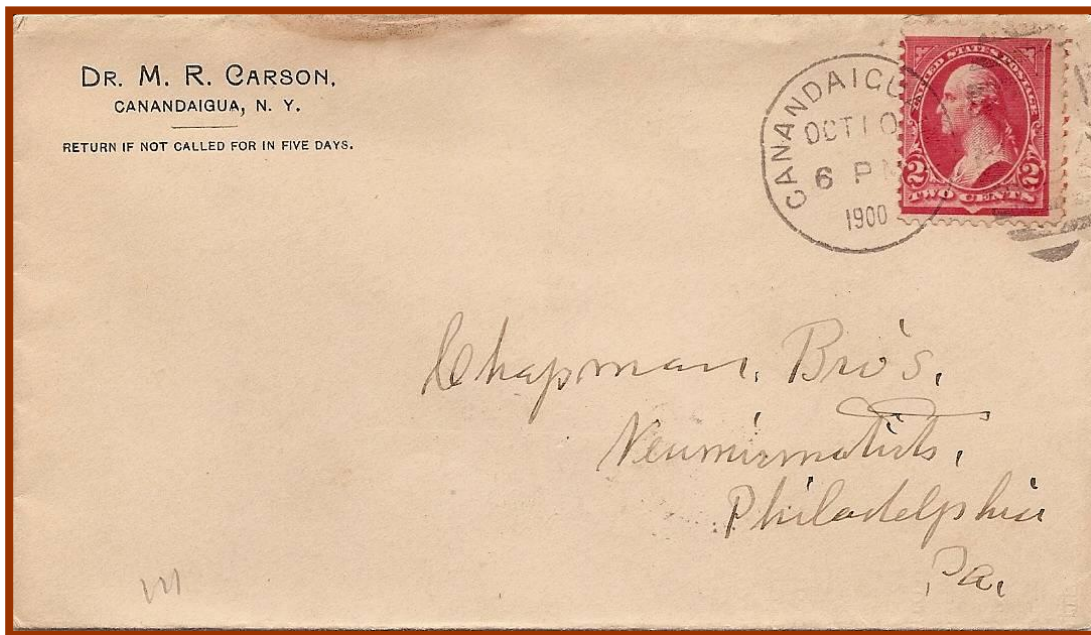 DR. M. R. CARSON,
CANANDAIGUA, N. Y.
RETURN IF NOT CALLED FOR IN FIVE DAYS.
CANANDAIGU
OCT 10
6 PM
1900
UNITED STATES POSTAGE
2 2
TWO CENTS
Chapman, Bro's.
Neumismatists,
Philadelphia
Pa.